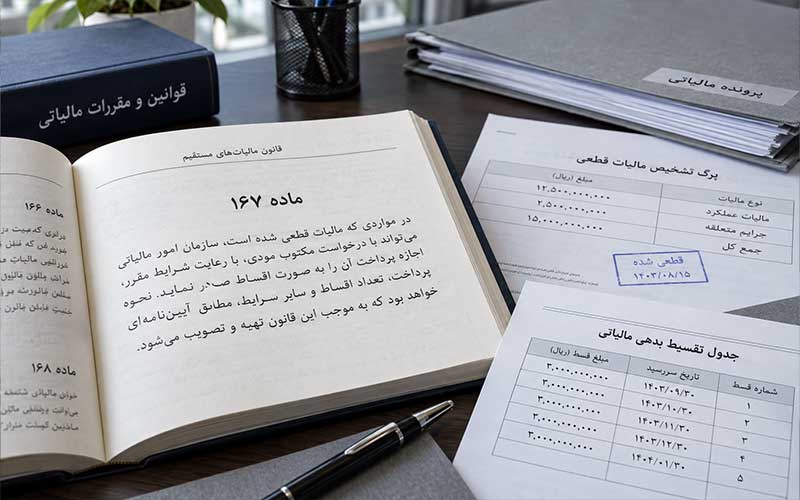 قوانین و مقررات مالیاتی
ماده ۱۶۶
ماده ۱۶۸
قانون مالیات‌های مستقیم
ماده ۱۶۷
در مواردی که مالیات قطعی شده است، سازمان امور مالیاتی
می‌تواند با درخواست مکتوب مودی، با رعایت شرایط مقرر،
اجازه پرداخت آن را به صورت اقساط صادر نماید. نحوه
پرداخت، تعداد اقساط و سایر شرایط، مطابق آیین‌نامه‌ای
خواهد بود که به موجب این قانون تهیه و تصویب می‌شود.
پرونده مالیاتی
برگ تشخیص مالیات قطعی
نوع مالیات مبلغ (ریال)
مالیات عملکرد ۱۲,۵۰۰,۰۰۰,۰۰۰
جرایم متعلقه ۲,۵۰۰,۰۰۰,۰۰۰
جمع کل ۱۵,۰۰۰,۰۰۰,۰۰۰
قطعی شده
۱۴۰۳/۰۸/۱۵
جدول تقسیط بدهی مالیاتی
شماره قسط تاریخ سررسید مبلغ قسط (ریال)
۱ ۱۴۰۳/۰۹/۳۰ ۳,۰۰۰,۰۰۰,۰۰۰
۲ ۱۴۰۳/۱۰/۳۰ ۳,۰۰۰,۰۰۰,۰۰۰
۳ ۱۴۰۳/۱۱/۳۰ ۳,۰۰۰,۰۰۰,۰۰۰
۴ ۱۴۰۳/۱۲/۳۰ ۳,۰۰۰,۰۰۰,۰۰۰
۵ ۱۴۰۴/۰۱/۳۰ ۳,۰۰۰,۰۰۰,۰۰۰